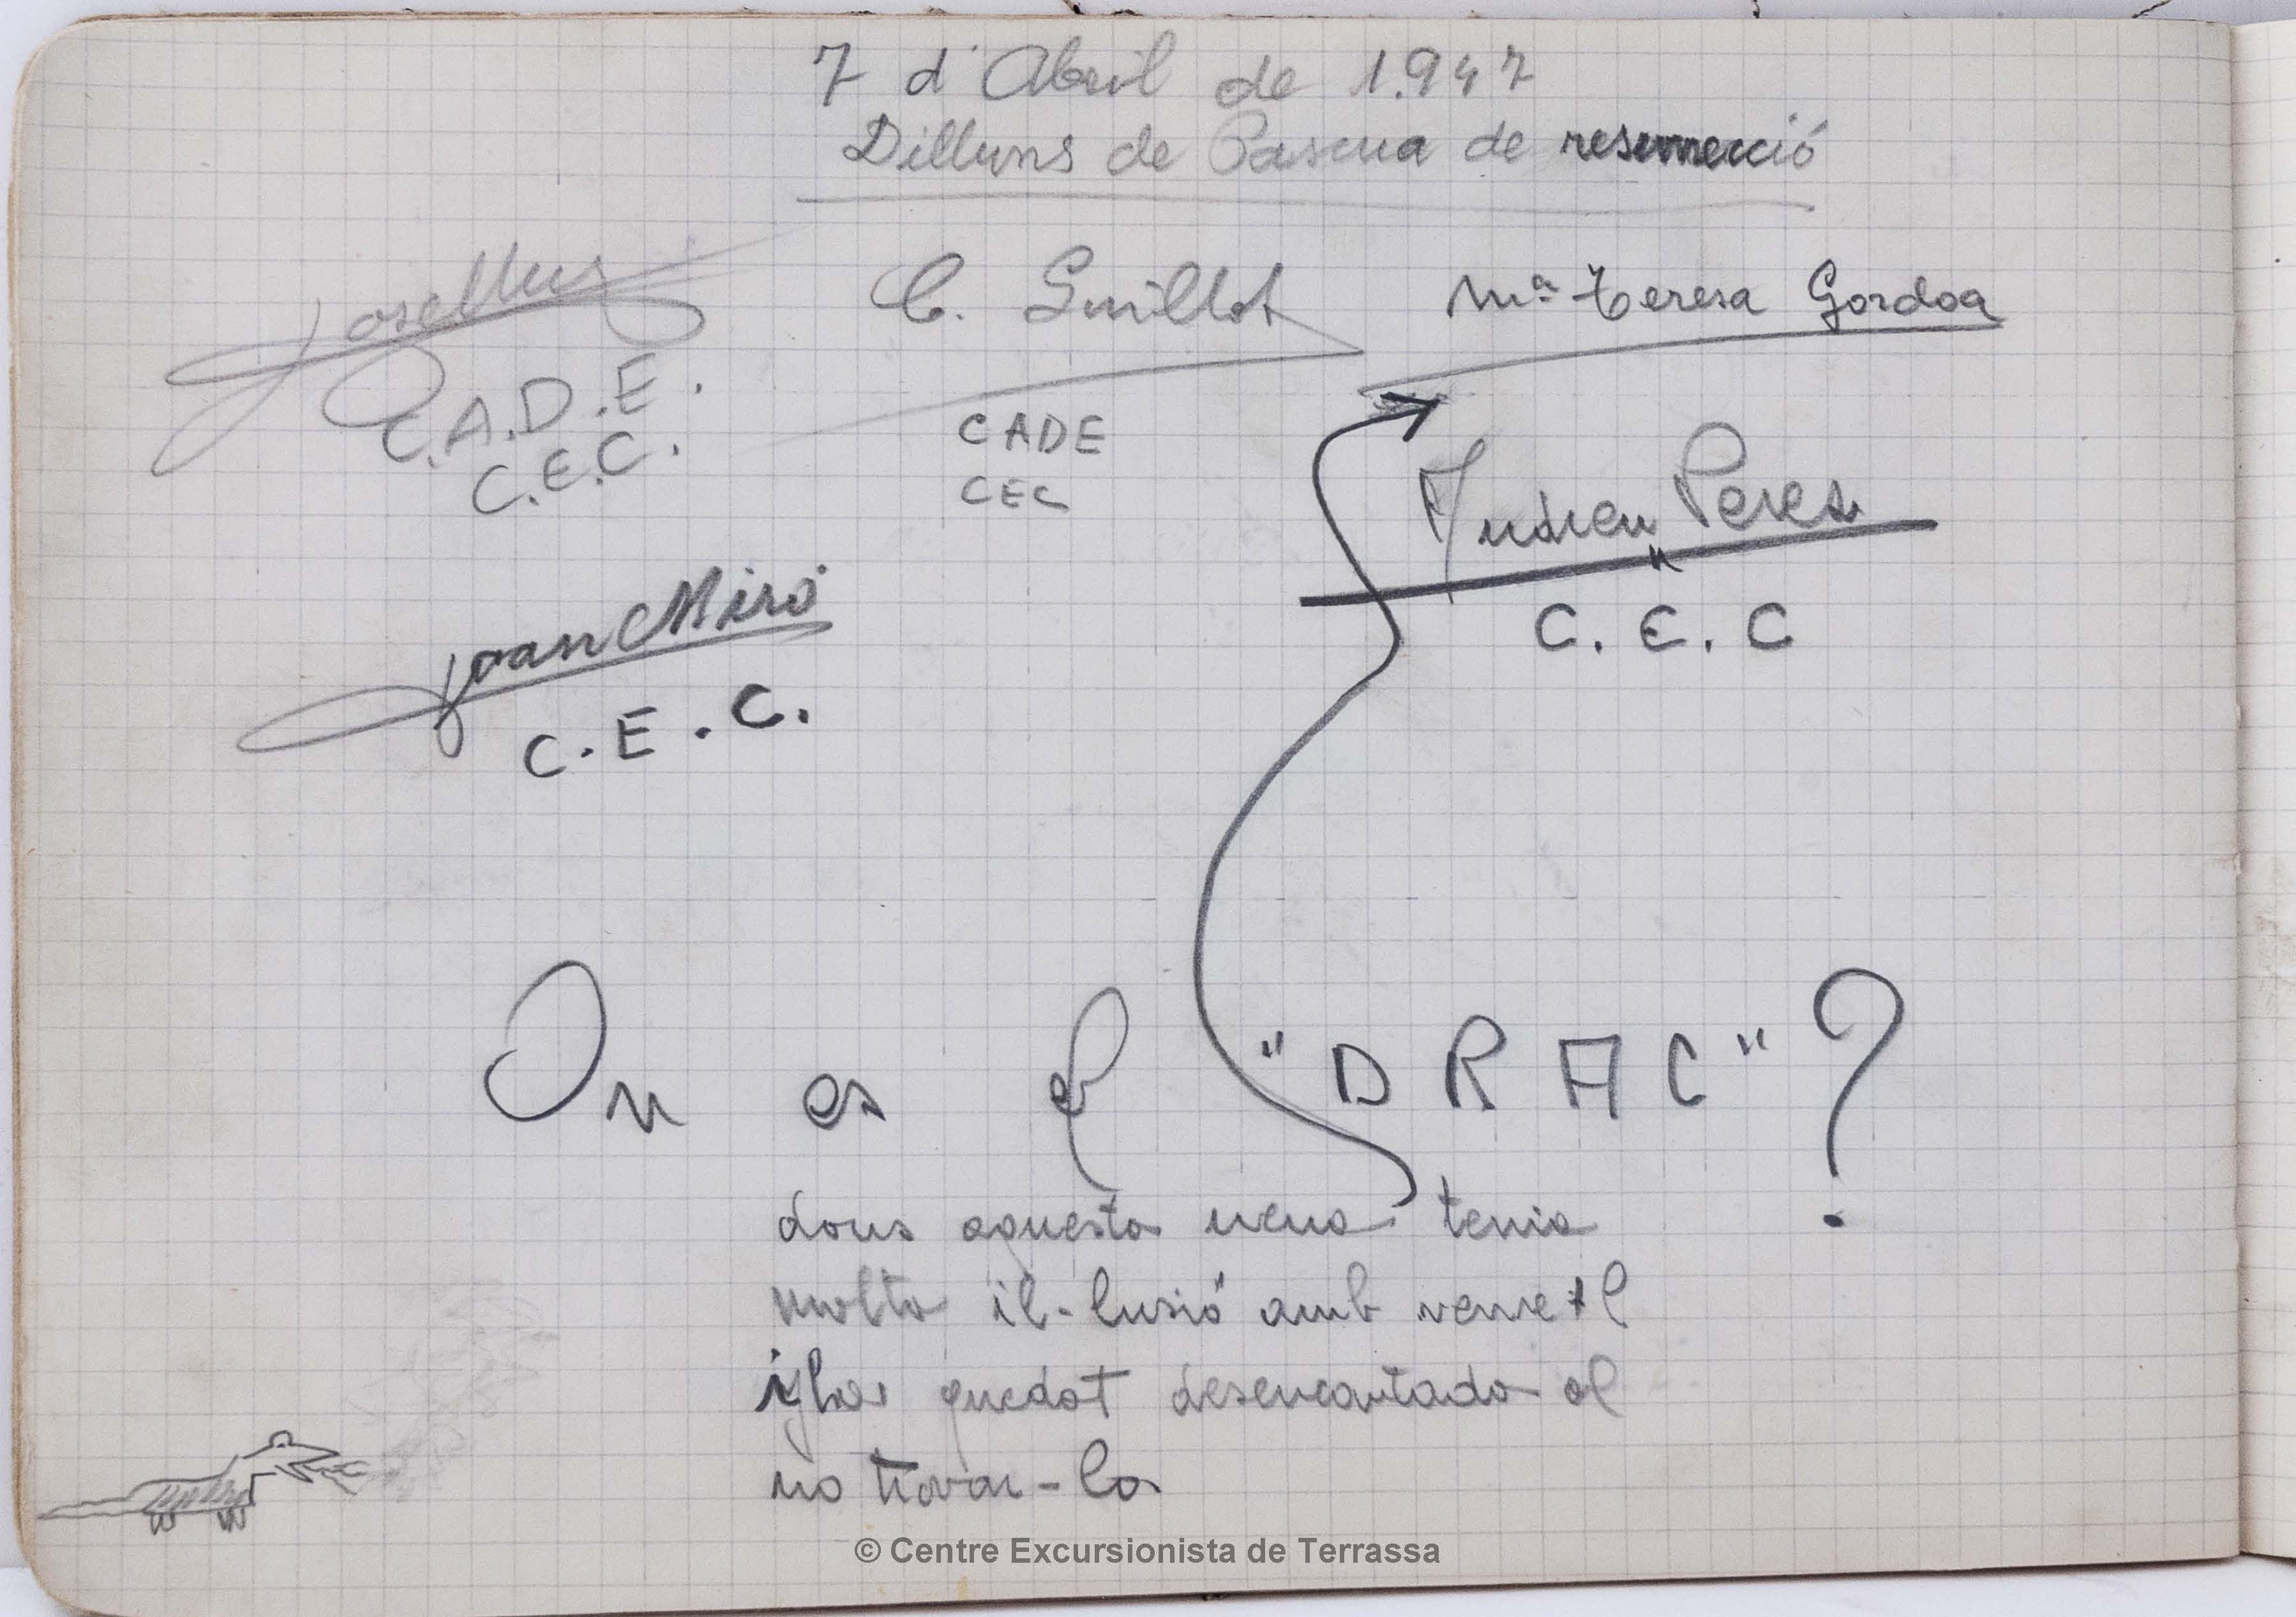 7 d'Abril de 1.947
Dilluns de Pascua de resurrecció
C. Guillot
Mª Teresa Gordoa
C.A.D.E.
C.E.C.
CADE
CEC
Andreu Peres
C.E.C
Joan Miró
C.E.C.
On es el "DRAC"?
dons aquesta nena tenia
molta il-lusió amb veure'l
i ha quedat desencantada al
no trovar-lo
© Centre Excursionista de Terrassa